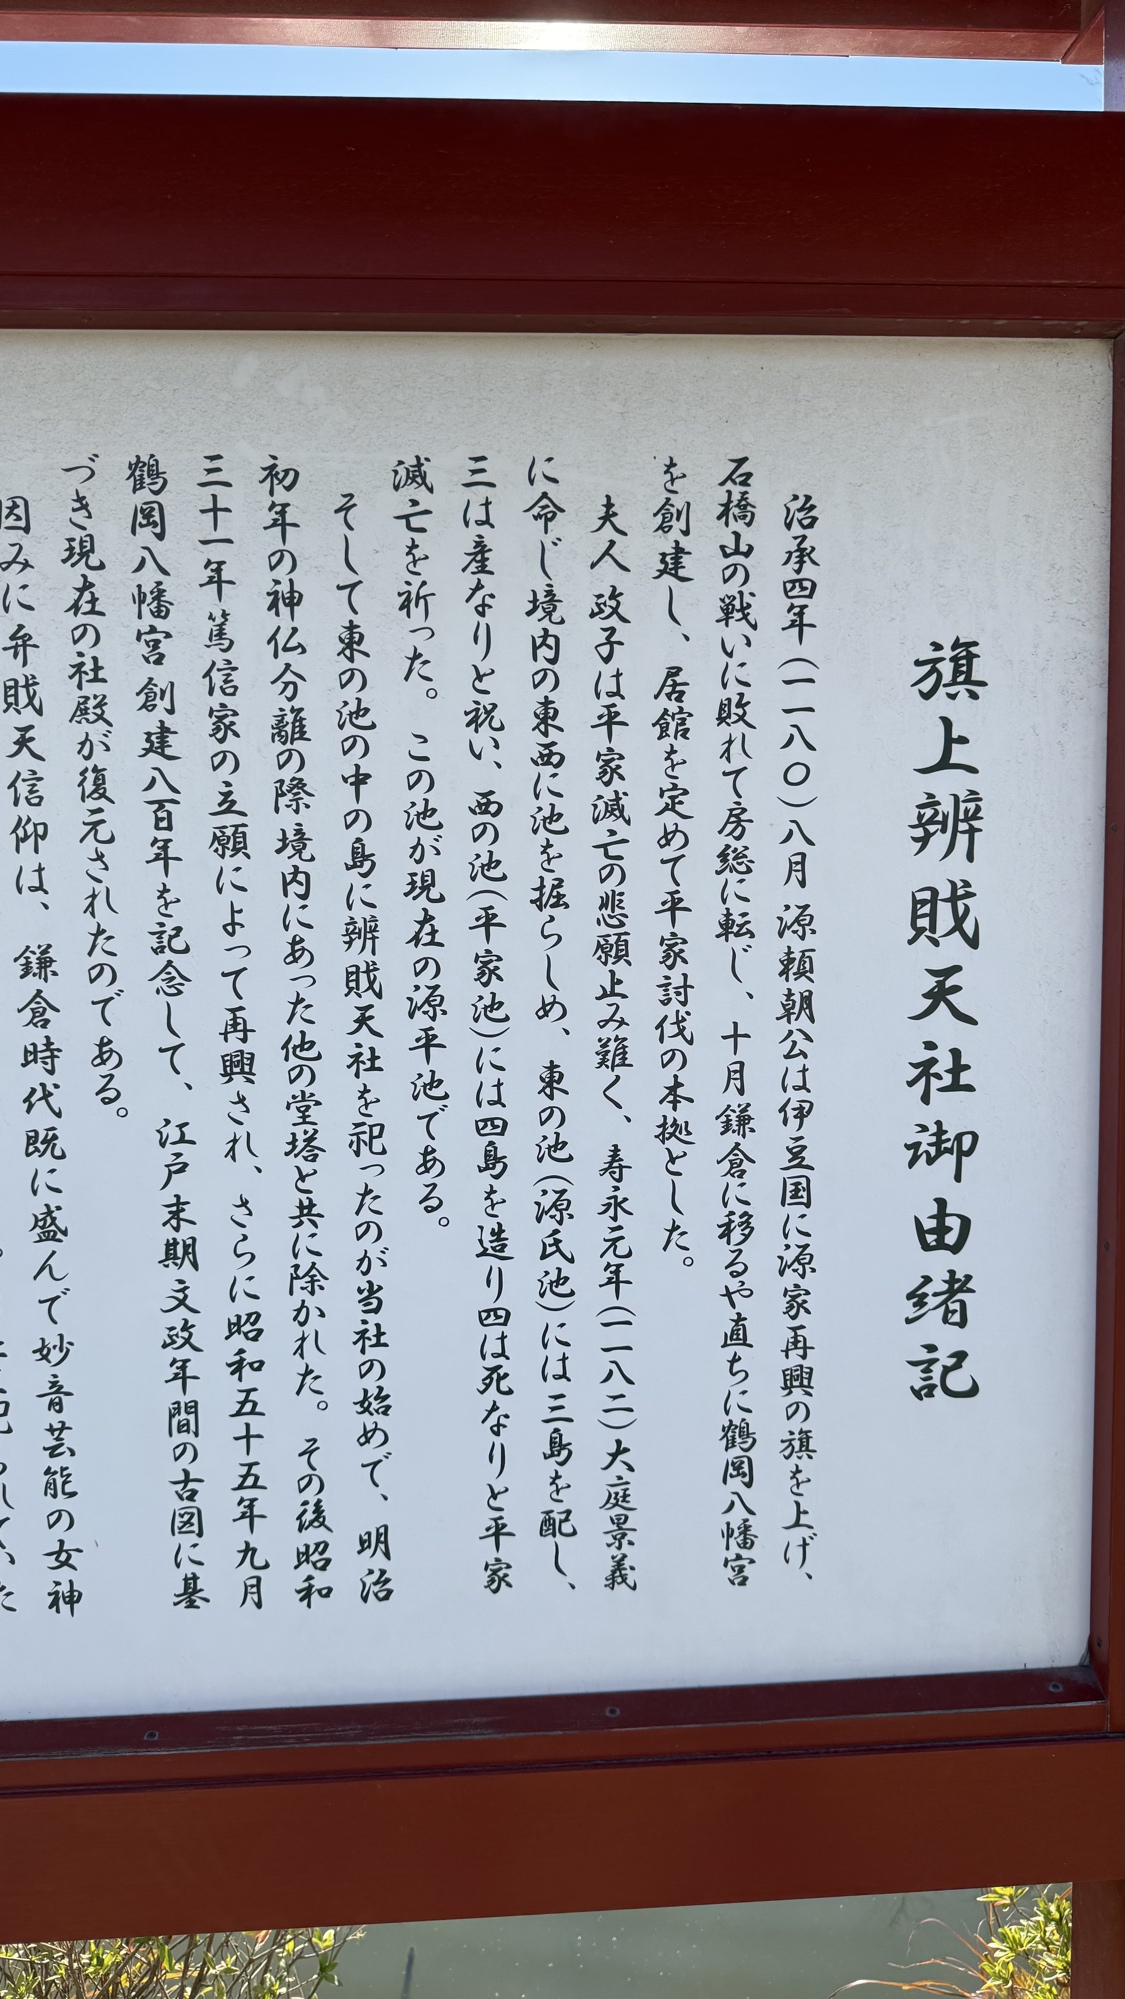 旗上辨財天社御由緒記
治承四年(一一八〇)八月源頼朝公は伊豆国に源家再興の旗を上げ、
石橋山の戦いに敗れて房総に転じ、十月鎌倉に移るや直ちに鶴岡八幡宮
を創建し、居館を定めて平家討伐の本拠とした。
夫人政子は平家滅亡の悲願止み難く、寿永元年(一一八二)大庭景義
に命じ境内の東西に池を掘らしめ、東の池(源氏池)には三島を配し、
三は産なりと祝い、西の池(平家池)には四島を造り四は死なりと平家
滅亡を祈った。この池が現在の源平池である。
そして東の池の中の島に辨財天社を祀ったのが当社の始めで、明治
初年の神仏分離の際境内にあった他の堂塔と共に除かれた。その後昭和
三十一年篤信家の立願によって再興され、さらに昭和五十五年九月
鶴岡八幡宮創建八百年を記念して、江戸末期文政年間の古図に基
づき現在の社殿が復元されたのである。
因みに弁財天信仰は、鎌倉時代既に盛んで妙音芸能の女神